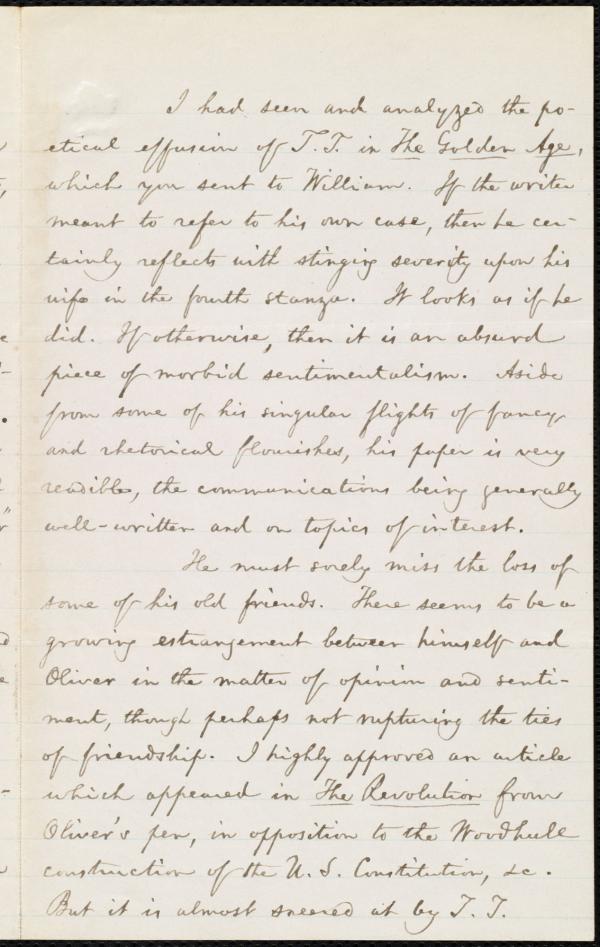 I had seen and analyzed the po-
etical effusion of T. T. in The Golden Age,
which you sent to William. If the writer
meant to refer to his own case, then he cer-
tainly reflects with stinging severity upon his
wife in the fourth stanza. It looks as if he
did. If otherwise, then it is an absurd
piece of morbid sentimentalism. Aside
from some of his singular flights of fancy
and rhetorical flourishes, his paper is very
readible, the communications being generally
well-written and on topics of interest.
He must sorely miss the loss of
some of his old friends. There seems to be a
growing estrangement between himself and
Oliver in the matter of opinion and senti-
ment, though perhaps not rupturing the ties
of friendship. I highly approved an article
which appeared in The Revolution from
Oliver's pen, in opposition to the Woodhull
construction of the U. S. Constitution, &c.
But it is almost sneered at by T. T.